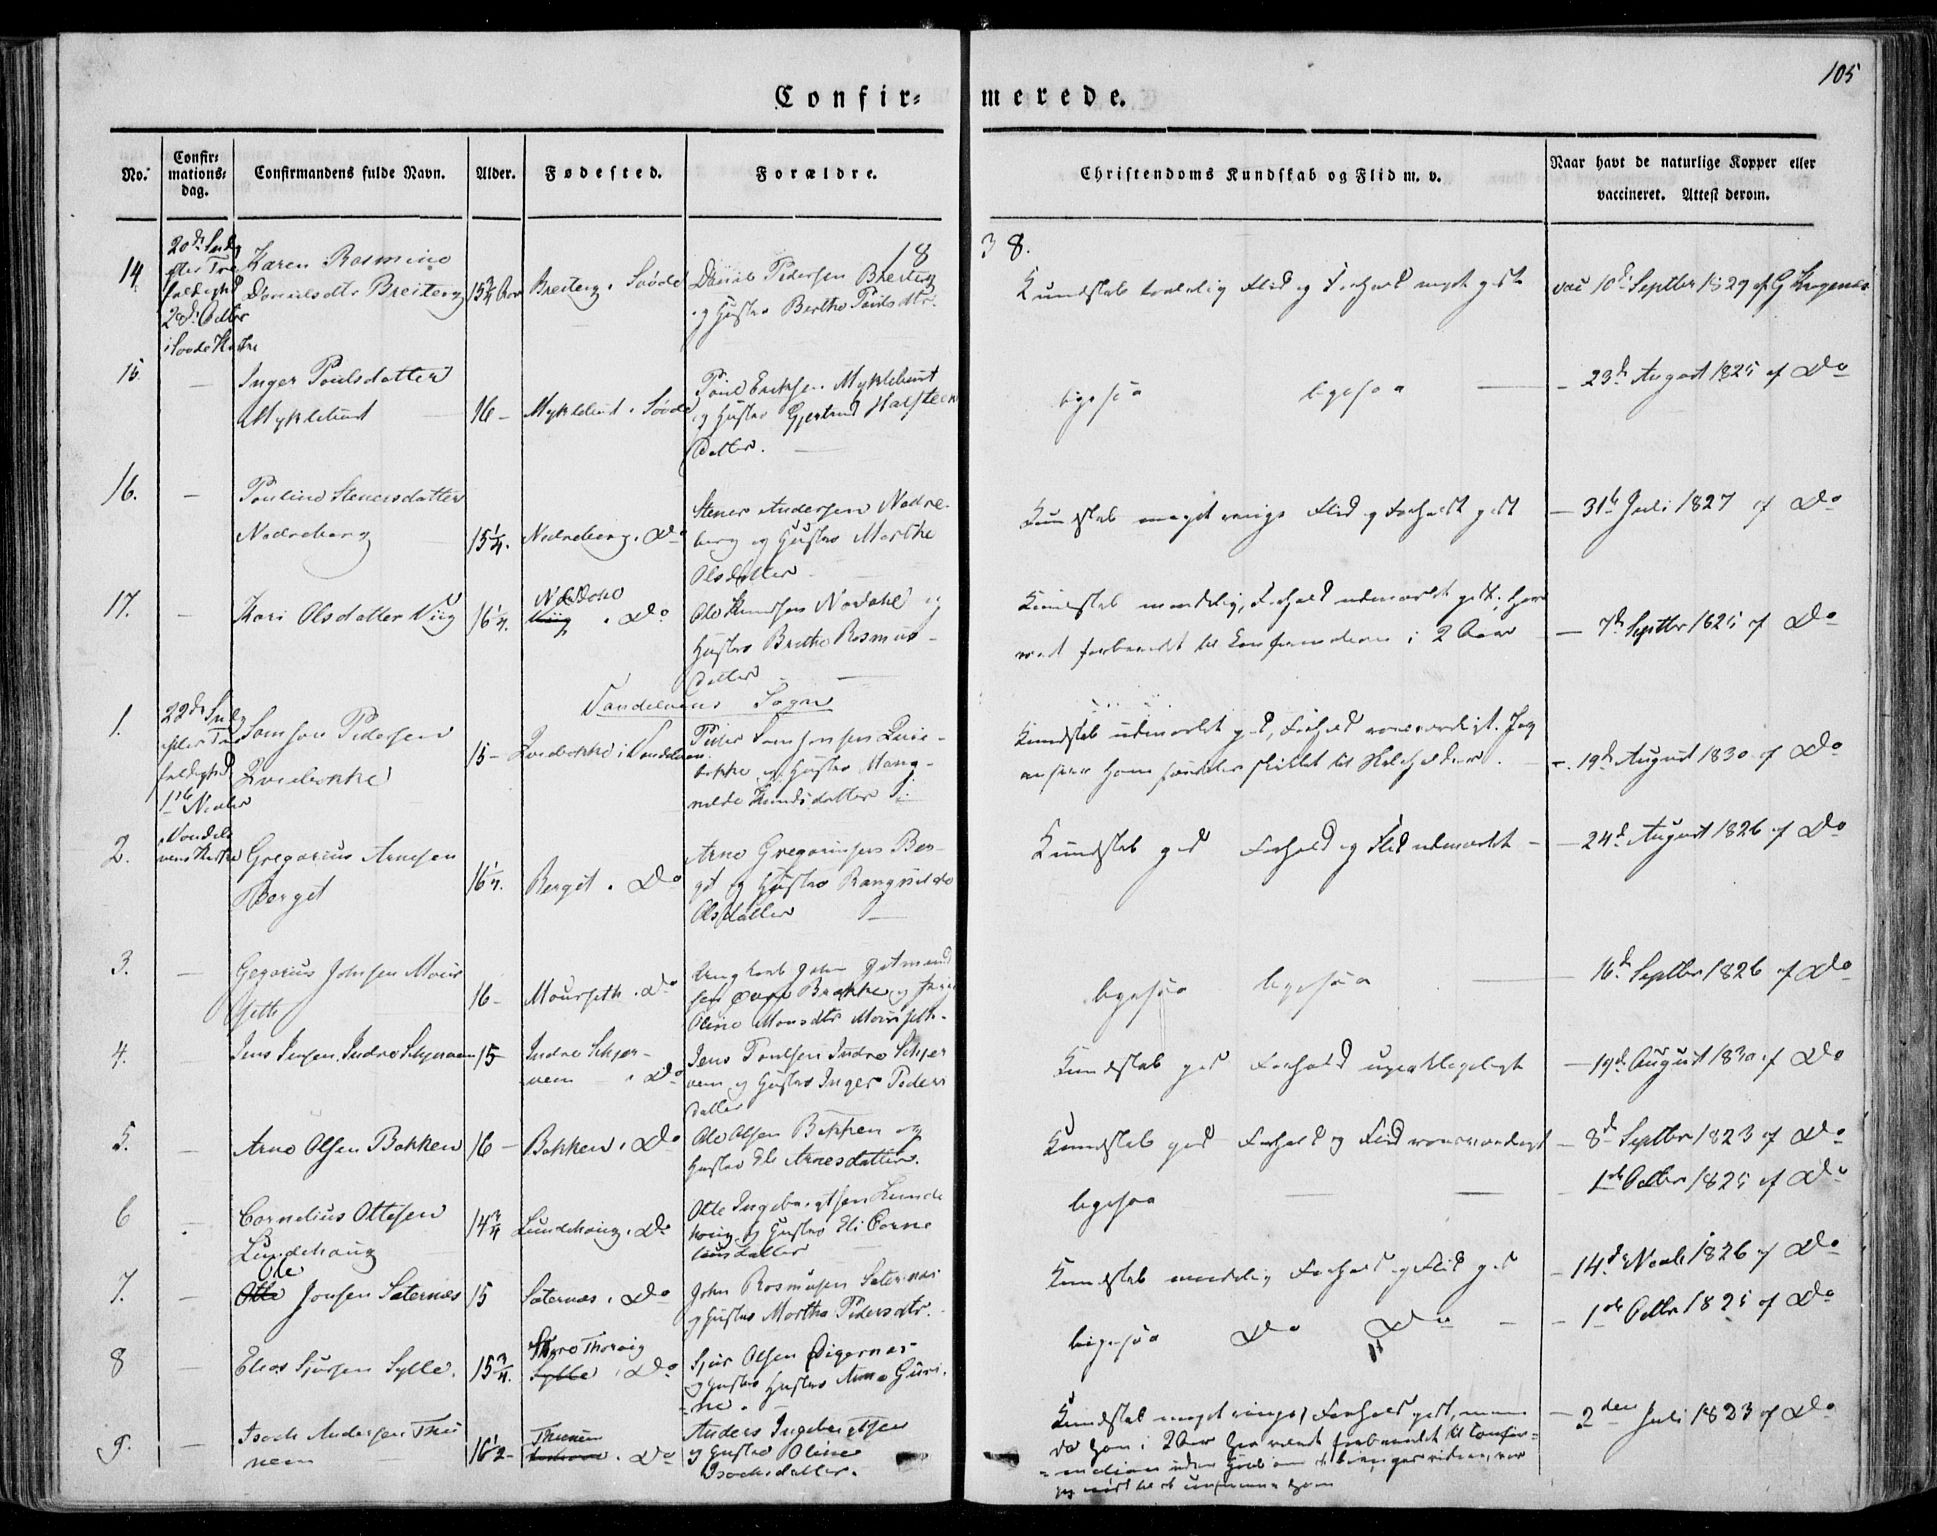 105
Confir= merede.
No.
Confir=
mations=
dag.
Confirmandens fulde Navn.
Alder.
Fødested.
Forældre.
Christendoms Kundskab og Flid m. v.
Naar havt de naturlige Kopper eller
vaccineret. Attest derom.
18 38.
14
20de Søndg
efter Tre
foldighed
28de Octbr
i Søvde Kirke
Karen Rasmine
Danielsdtr Breiteig
15 3/4 Aar
Breiteig i Søvde
Daniel Pedersen Breiteig
og Hustro Berthe Poulsdtr.
Kundskab taalelig Flid og Forhold meget godt
vac 10de Septbr 1829 af G Krogenæs
15.
—
Inger Poulsdatter
Myklebust
16 —
Myklebust i Søvde
Poul Eriksen Myklebust
og Hustro Gjertrud Halsteen
Datter.
ligesaa ligesaa —
— 23de August 1825 af Do
16.
—
Pouline Steenersdatter
Nedreberg
15 1/4.
Nedreberg i Do
Stener Andersen Nedre-
berg og Hustro Marthe
Olsdatter
Kundskab meget ringe Flid og Forhold godt
— 31te Juli 1827 af Do
17.
—
Kari Olsdatter Viig
16 1/4.
Nordahl
Viig i Do
Ole Knudsen Nordahl og
Hustro Brithe Rasmus-
datter
Kundskab maadelig, Forhold udmærket godt; har
været forberedt til Confirmationen i 2 Aar
— 7de Septbr 1825 af Do
Vandelvens Sogn
1.
22de Søndg
efter Tre
foldighed
1ste Novbr
Vandel-
vens Kirke
Samson Pedersen
15 —
i Vandelven
Peder Samsonsen
og Hustro Mang-
nilde Knudsdatter
Kundskab udmærket god, Forhold roesværdigt. Jeg
anseer ham særdeles skikket til Skoleholder.
— 19de August 1830 af Do
2.
Gregorius Arnesen
Berget
16 1/4.
Berget i Do
Arne Gregoriussen Ber-
get og Hustro Rangnilde
Olsdatter
Kundskab god Forhold og Flid udmærket —
— 24de August 1826 af Do
3.
—
Gegorius Johnsen Mour
sæth
16 —
Mourseth i Do
Ungkarl John Gutmund
sen Bakke og Pige
Oline Monsdtr Mourseth.
ligesaa ligesaa —
— 16de Septbr 1826 af Do
4.
—
Jens Jensen Indre Schjerven
15
Indre Schjer-
vem i Do
Jens Poulsen Indre Schjer
vem og Hustro Inger Peders
datter
Kundskab god Forhold upaaklageligt
— 19de August 1830 af Do
5.
—
Arne Olsen Bakken
16 —
Bakken i Do
Ole Olsen Bakken og
Hustro Eli Arnesdatter.
Kundskab god Forhold og Flid roesværdigt
— 8de Septbr 1823 af Do
6
—
Cornelius Ottesen
Lundehoug
14 3/4
Lundehoug i Do
Otte Ingebrigtsen Lunde
houg og Hustro Eli Corne
liusdatter
ligesaa — —
— 1ste Octbr 1825 af Do
7.
—
Ole
Otte Jonsen Sæternæs
15
Sæternæs i Do
John Rasmusen Sæternæs
og Hustro Marthe Pedersdtr.
Kundskab maadelig Forhold og Flid god
— 14de Novbr 1826 af Do
8
—
Elias Sjursen Sylte.
15 3/4.
Sylte i Do
Sjur Olsen Digernæs
og Hustro Hustro Anne Guri-
ne.
ligesaa Do Do —
— 1ste Octbr 1825 af Do
9.
—
Isach Andersen Thu
nem
16 1/2 —
Thunem
i Do
Anders Ingebrigtsen
og Hustro Oline
Isachsdatter.
Kundskab meget ringe, Forhold godt, men
da han i 2 Aar har været forberedt til Confir=
=mation uden Haab om at bringes videre, var
jeg nødt til at confirmere ham
— 2den Juli 1823 af Do